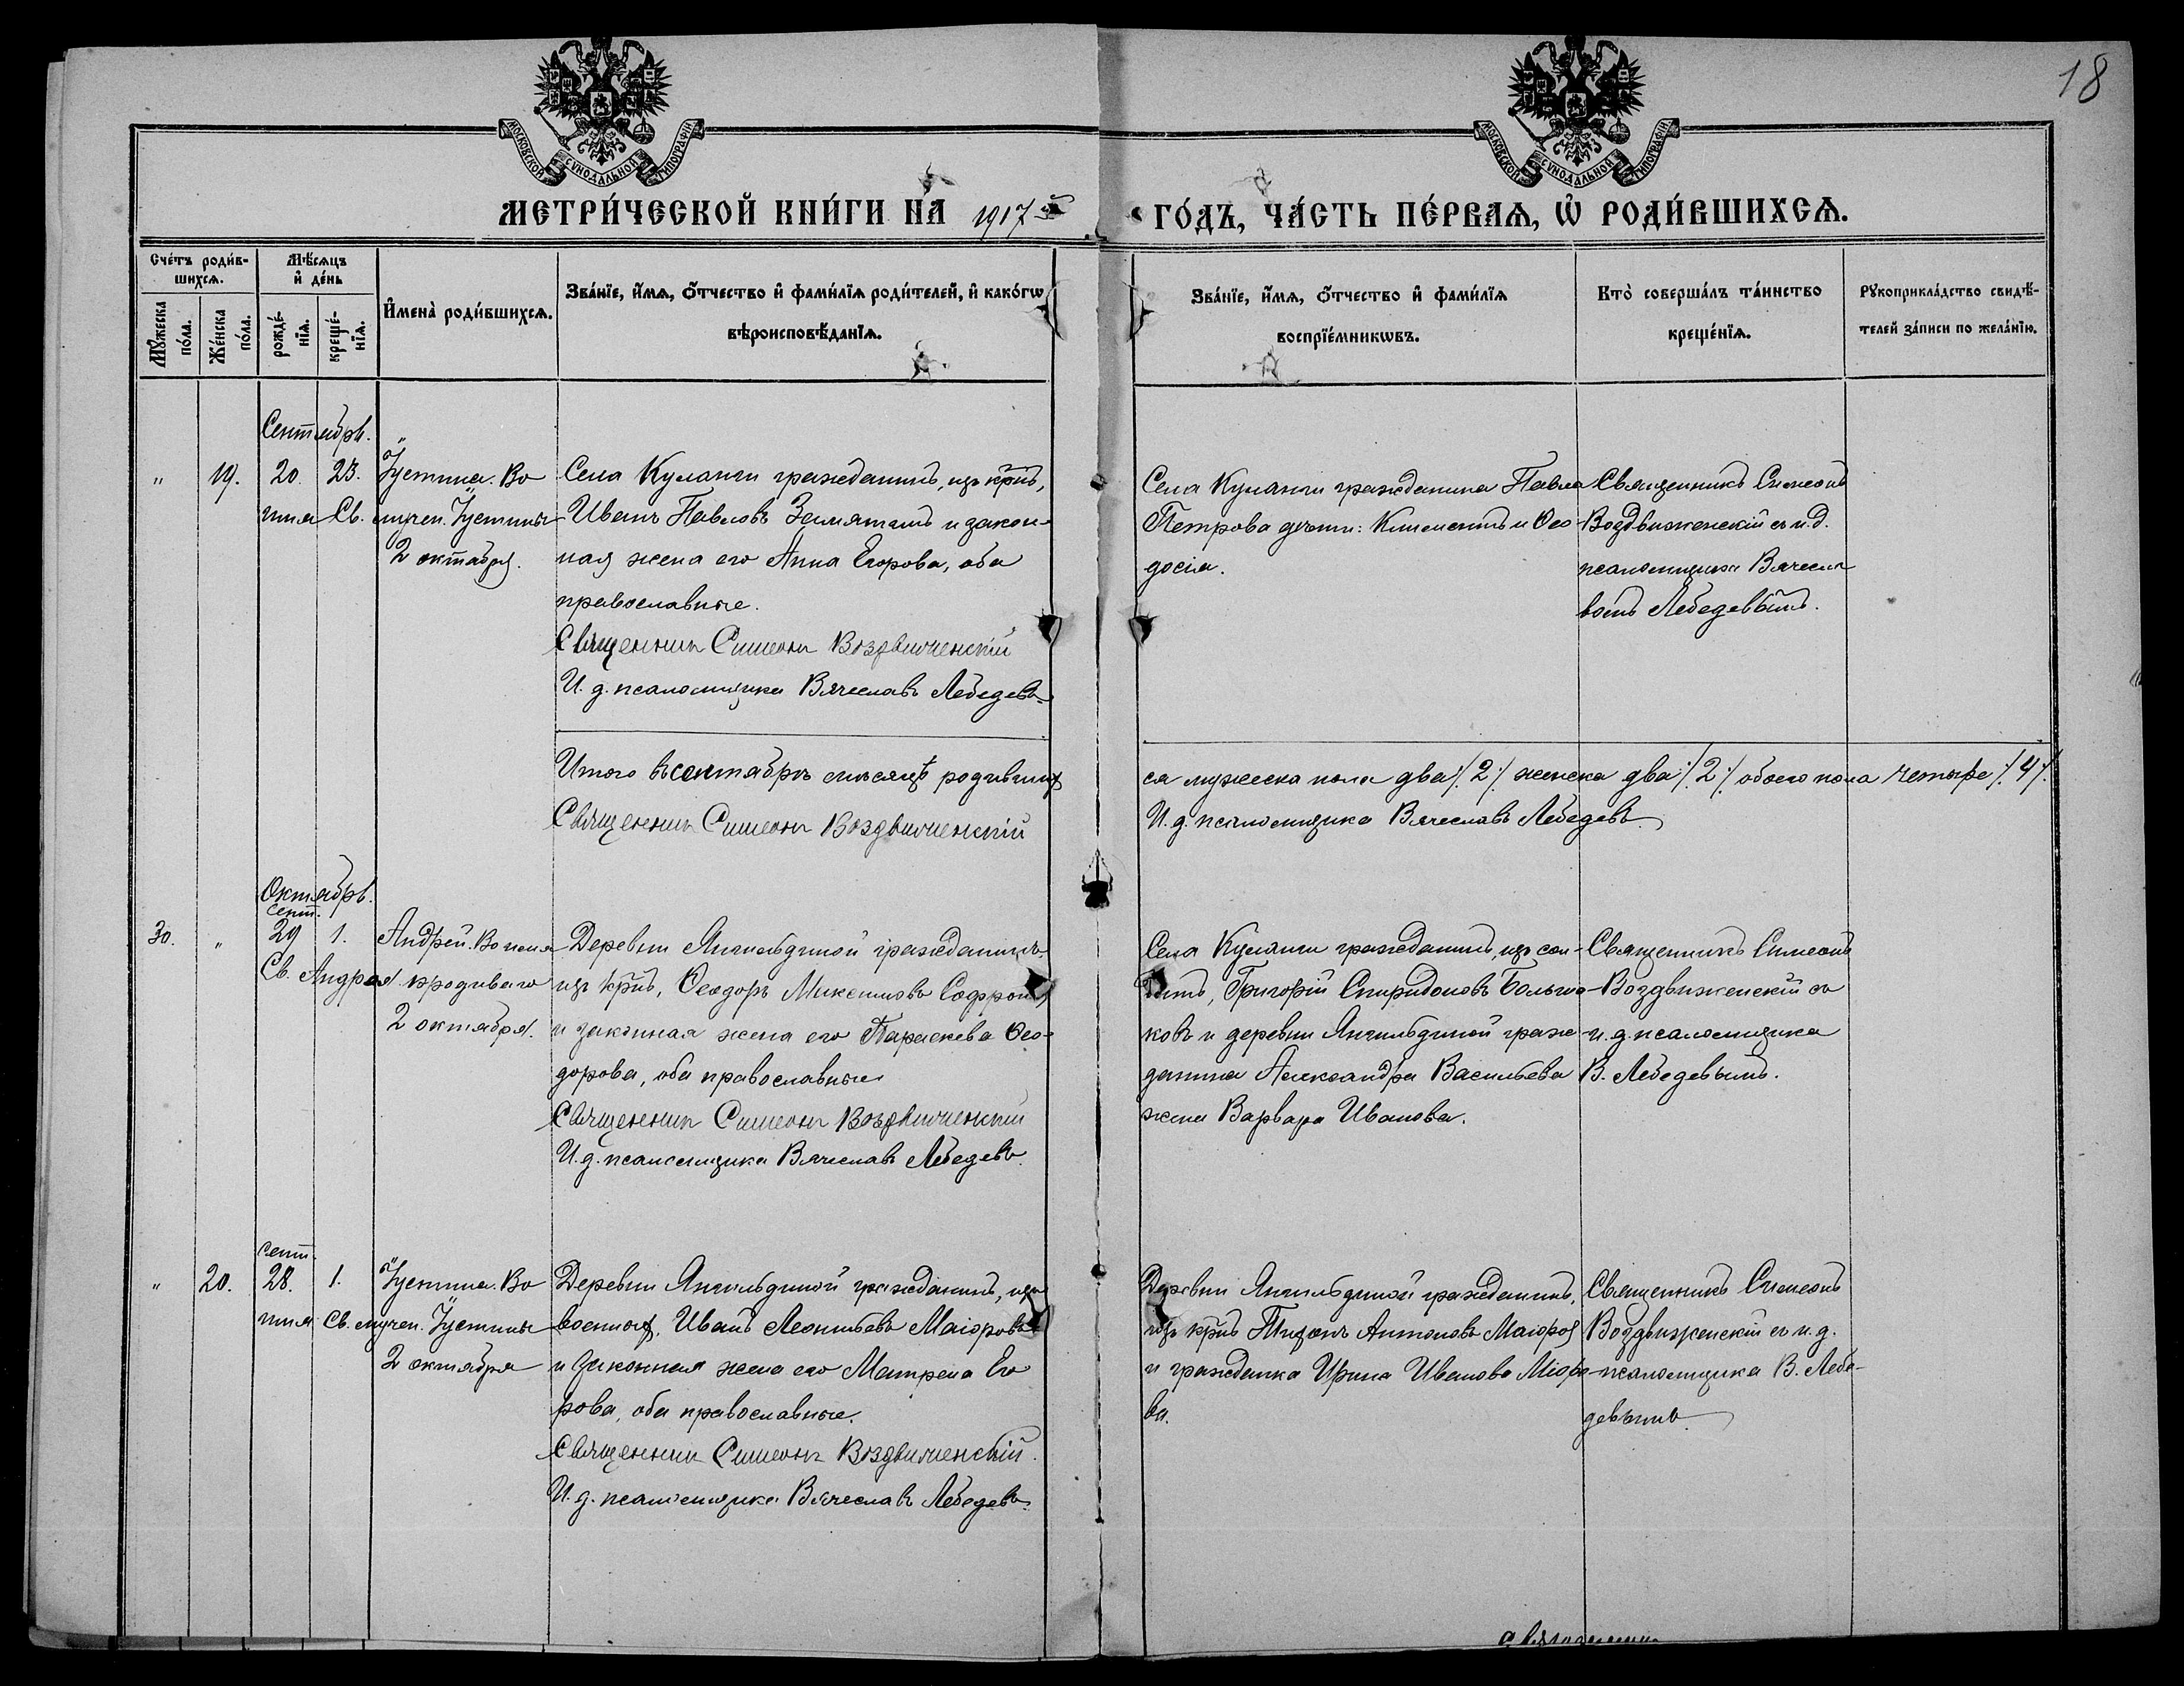 18
МОСКОВСКОЙ СѴНОДАЛЬНОЙ ТИПОГРАФІИ.
МОСКОВСКОЙ СѴНОДАЛЬНОЙ ТИПОГРАФІИ.
МЕТРИ́ЧЕСКОЙ КНИ́ГИ НА 1917 й
ГО́ДЪ, ЧА́СТЬ ПЕ́РВАЯ, Ѡ РОДИ́ВШИХСЯ.
Сче́тъ роди́в-
шихсѧ.
Мꙋ́жеска по́ла.
Же́нска по́ла.
Мѣ́сѧцъ
и҆ де́нь
рожде́-
нїѧ.
креще́-
нїѧ.
И҆мена̀ роди́вшихсѧ.
Зва́нїе, и҆́мѧ, ѻ҆́тчество и҆ фами́лїѧ роди́телей, и҆ како́гѡ
вѣроисповѣ́данїѧ.
Зва́нїе, и҆́мѧ, ѻ҆́тчество и҆ фами́лїѧ
воспрїе́мникѡвъ.
Кто̀ соверша́лъ та́инство
креще́нїѧ.
Рꙋкоприкла́дство свидѣ́-
телей за́писи по жела́нїю.
Сентябрь.
" 19. 20. 23.
Іустина. Во
имя Св. мучен. Іустины
2 октября.
Села Куланги гражданинъ, изъ крнъ,
Иванъ Павловъ Земляковъ и закон-
ная жена его Анна Егорова, оба
православные.
Священник Симеон Воздвиженскій
И. д. псаломщика Вячеславъ Лебедевъ
Села Куланги гражданина Павла
Петрова дѣти: Климентъ и Ѳео-
досія.
Священникъ Симеонъ
Воздвиженскій съ и. д.
псаломщика Вячесла
вомъ Лебедевымъ.
Итого въ сентябрѣ мѣсяцѣ родивших
ся мужеска пола два /. 2 /. женска два /. 2 /. обоего пола четыре /. 4 /.
Священник Симеон Воздвиженскій
И. д. псаломщика Вячеславъ Лебедевъ.
Октябрь.
сент.
30. " 29 1.
Андрей. Во имя
Св. Андрея юродиваго
2 октября.
Деревни Янгильдиной гражданинъ,
изъ крнъ, Ѳеодоръ Максимовъ Софронов
и законная жена его Параскева Ѳео-
дорова, оба православные
Священник Симеон Воздвиженскій
И. д. псаломщика Вячеславъ Лебедевъ.
Села Куланги гражданинъ, изъ сол-
датъ, Григорій Спиридоновъ Больша-
ковъ и деревни Янгильдиной граж-
данина Александра Васильева
жена Варвара Иванова.
Священникъ Симеонъ
Воздвиженскій съ
и. д. псаломщика
В. Лебедевымъ.
сент.
" 20. 28. 1.
Іустина. Во
имя Св. мучен. Іустины
2 октября
Деревни Янгильдиной гражданинъ, изъ
военных, Иванъ Леонтьевъ Маіоровъ
и законная жена его Матрена Его
рова, оба православные.
Священник Симеон Воздвиженскій.
И. д. псаломщика Вячеславъ Лебедевъ.
Деревни Янгильдиной гражданинъ,
изъ крнъ Тихонъ Антоновъ Маіоров
и гражданка Ирина Иванова Маіоро-
ва.
Священникъ Симеонъ
Воздвиженскій съ и. д.
псаломщика В. Лебе-
девымъ.